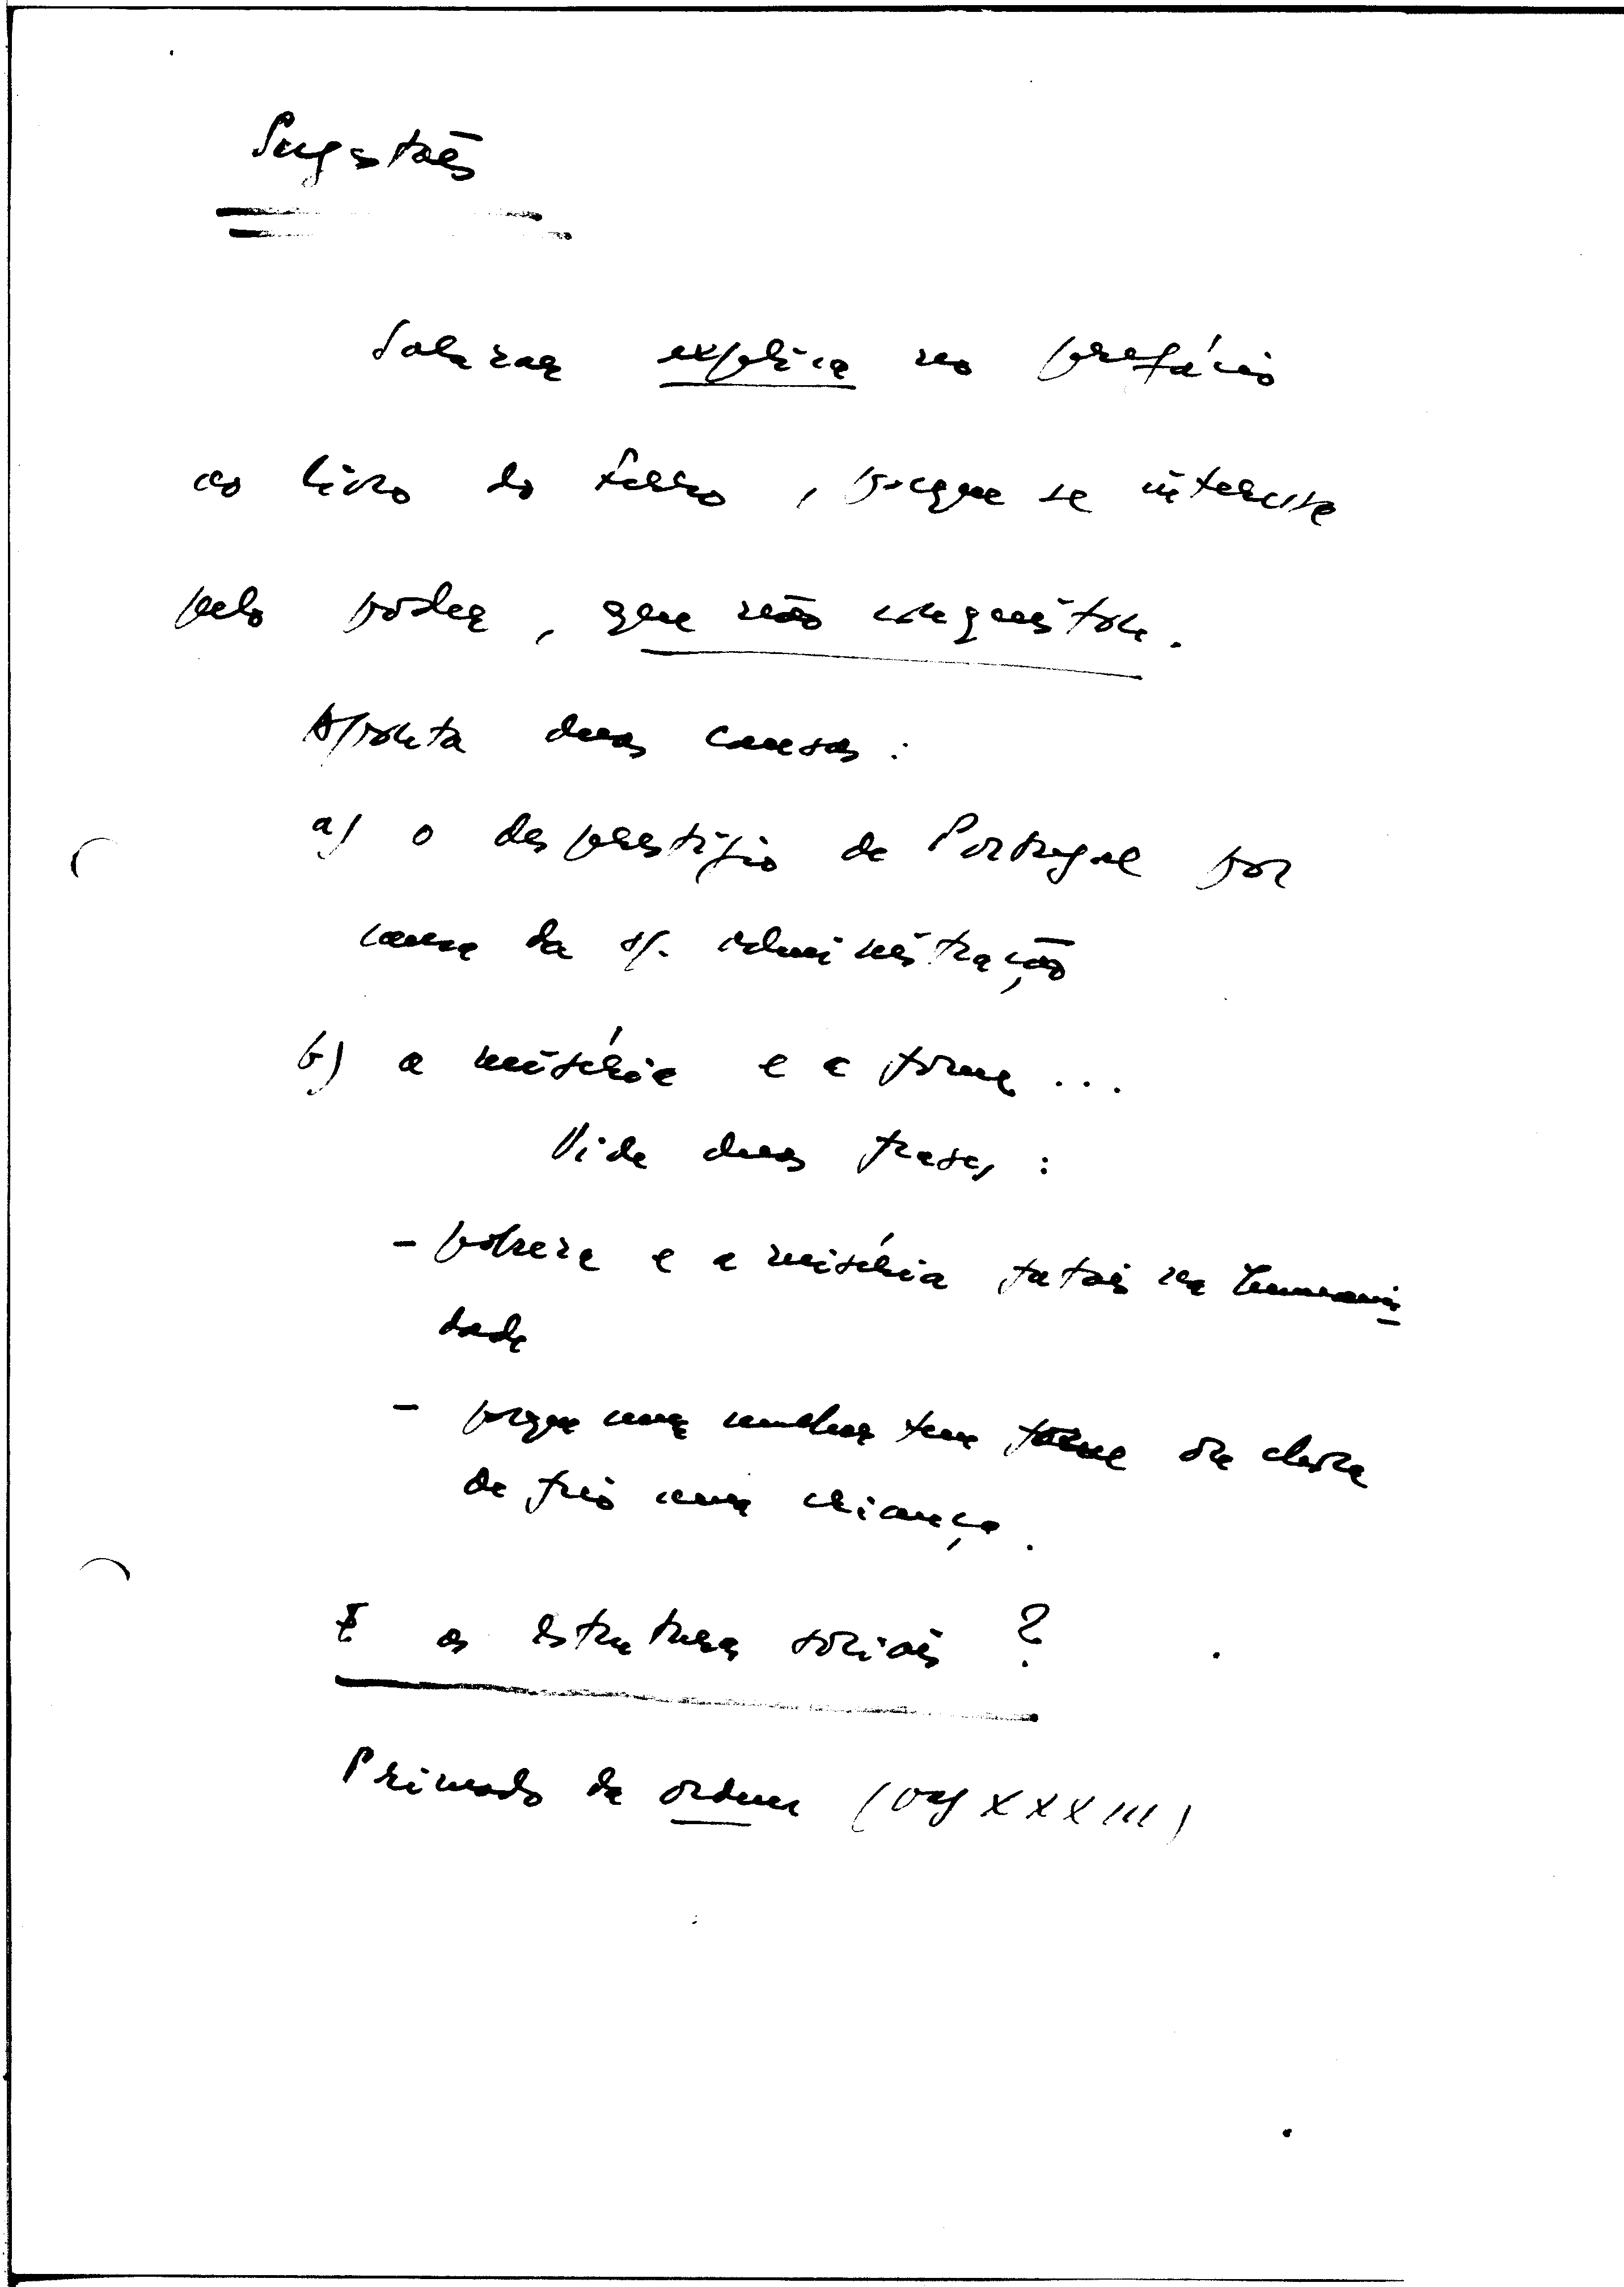 Sugestões
Salazar explica no prefácio
ao livro do Ferro, porque se interessa
pelo poder, que não conquistou.
Aponta duas causas:
a) o desprestígio de Portugal por
causa da s/. administração
b) a miséria e a fome...
Vide duas frases:
- pobreza e a miséria fatais na humani
dade
- porque uma mulher tem fome ou chora
de frio uma criança.
E as estruturas sociais?
Primado da ordem (pag XXXIII)